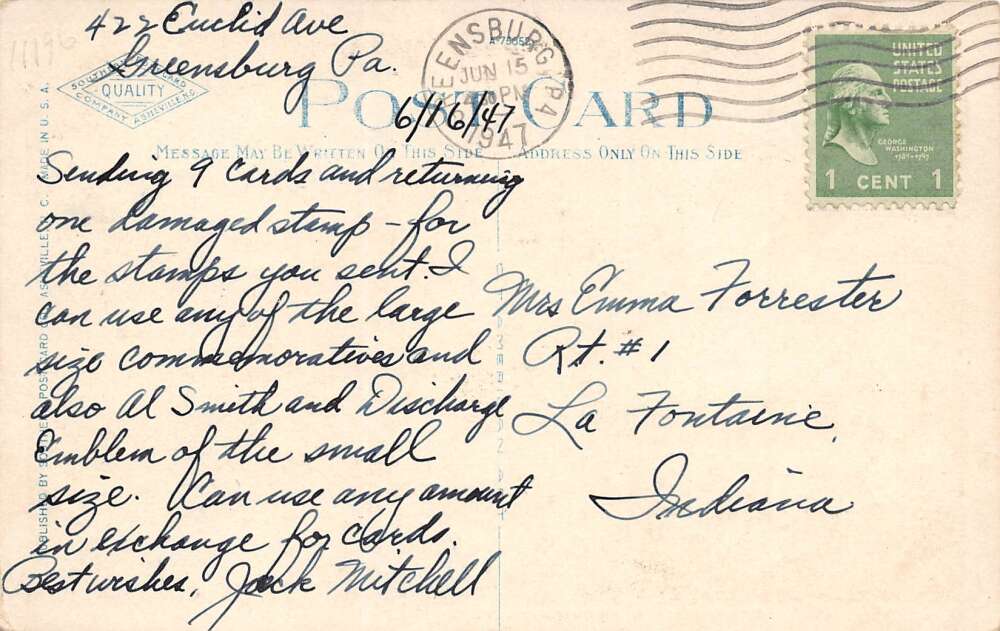 422 Euclid Ave
Greensburg Pa.
6/16/47
11196
SOUTHERN POSTCARD
QUALITY
COMPANY ASHEVILLE N.C.
POST CARD
MESSAGE MAY BE WRITTEN ON THIS SIDE
ADDRESS ONLY ON THIS SIDE
GREENSBURG, PA
JUN 15
PM
1947
UNITED
STATES
POSTAGE
GEORGE
WASHINGTON
1789-1797
1 CENT 1
Sending 9 cards and returning
one damaged stamp - for
the stamps you sent. I
can use any of the large
size commemoratives and
also Al Smith and Discharge
Emblem of the small
size. Can use any amount
in exchange for cards.
Best wishes, Jack Mitchell
Mrs Emma Forrester
Rt. #1
La Fontaine,
Indiana
PUBLISHED BY SOUTHERN POSTCARD CO., ASHEVILLE, N. C. MADE IN U. S. A.